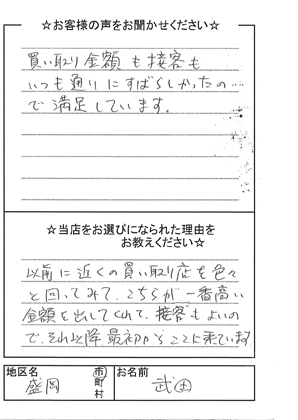 ☆お客様の声をお聞かせください☆
買い取り金額も接客も
いつも通りにすばらしかったの…
で満足しています。
☆当店をお選びになられた理由を
お教えください☆
以前に近くの買い取り店を色々
と回ってみて、こちらが一番高い
金額を出してくれて、接客もよいの
で、それ以降最初からここに来ています
地区名
盛岡
市
町
村
お名前
武田